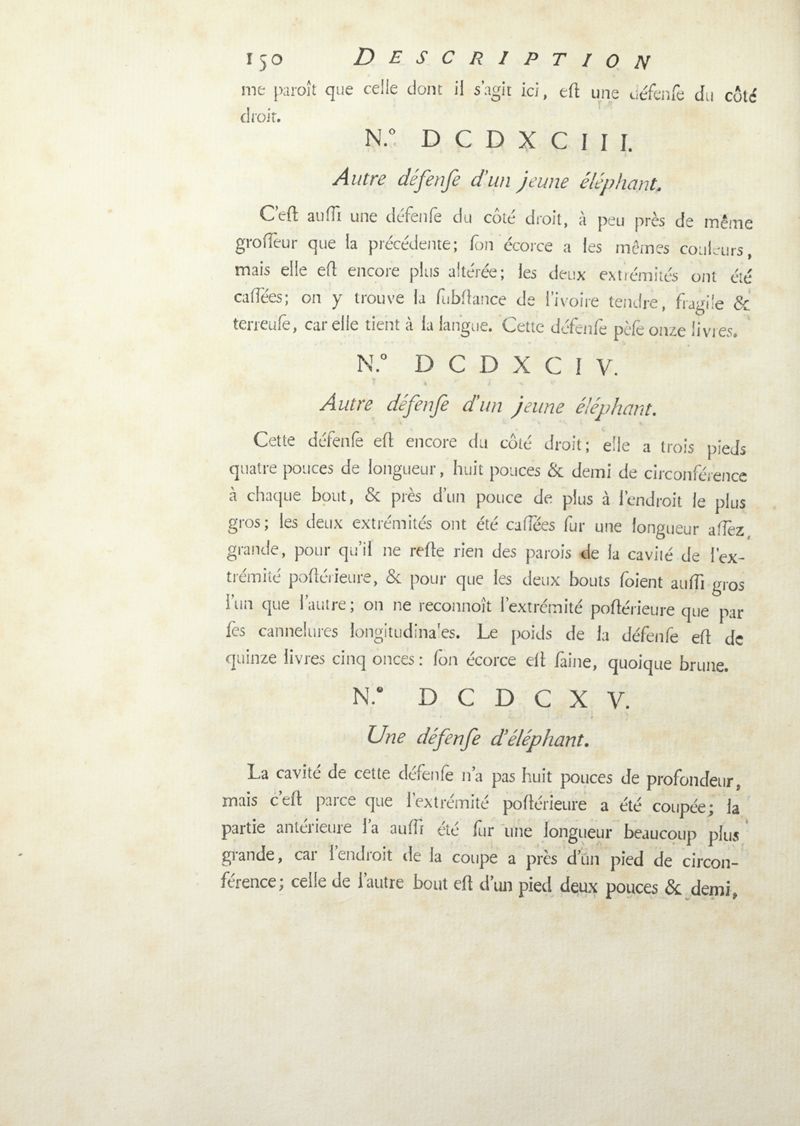 150 DESCRIPTION
me paroît que celle dont il s'agit ici, eſt une défenſe du côté
droit.
N.° DCDXCIII.
Autre défenſe d'un jeune éléphant.
C'eſt auſſi une défenſe du côté droit, à peu près de même
groſſeur que la précédente; ſon écorce a les mêmes couleurs,
mais elle eſt encore plus altérée; les deux extrémités ont été
caſſées; on y trouve la ſubſtance de l'ivoire tendre, fragile &
terreuſe, car elle tient à la langue. Cette défenſe pèſe onze livres.
N.° DCDXCIV.
Autre défenſe d'un jeune éléphant.
Cette défenſe eſt encore du côté droit; elle a trois pieds
quatre pouces de longueur, huit pouces & demi de circonférence
à chaque bout, & près d'un pouce de plus à l'endroit le plus
gros; les deux extrémités ont été caſſées ſur une longueur aſſez
grande, pour qu'il ne reſte rien des parois de la cavité de l'ex-
trémité poſtérieure, & pour que les deux bouts ſoient auſſi gros
l'un que l'autre; on ne reconnoît l'extrémité poſtérieure que par
ſes cannelures longitudinales. Le poids de la défenſe eſt de
quinze livres cinq onces: ſon écorce eſt ſaine, quoique brune.
N.° DCDCXV.
Une défenſe d'éléphant.
La cavité de cette défenſe n'a pas huit pouces de profondeur,
mais c'eſt parce que l'extrémité poſtérieure a été coupée; la
partie antérieure l'a auſſi été ſur une longueur beaucoup plus
grande, car l'endroit de la coupe a près d'un pied de circon-
férence; celle de l'autre bout eſt d'un pied deux pouces & demi,